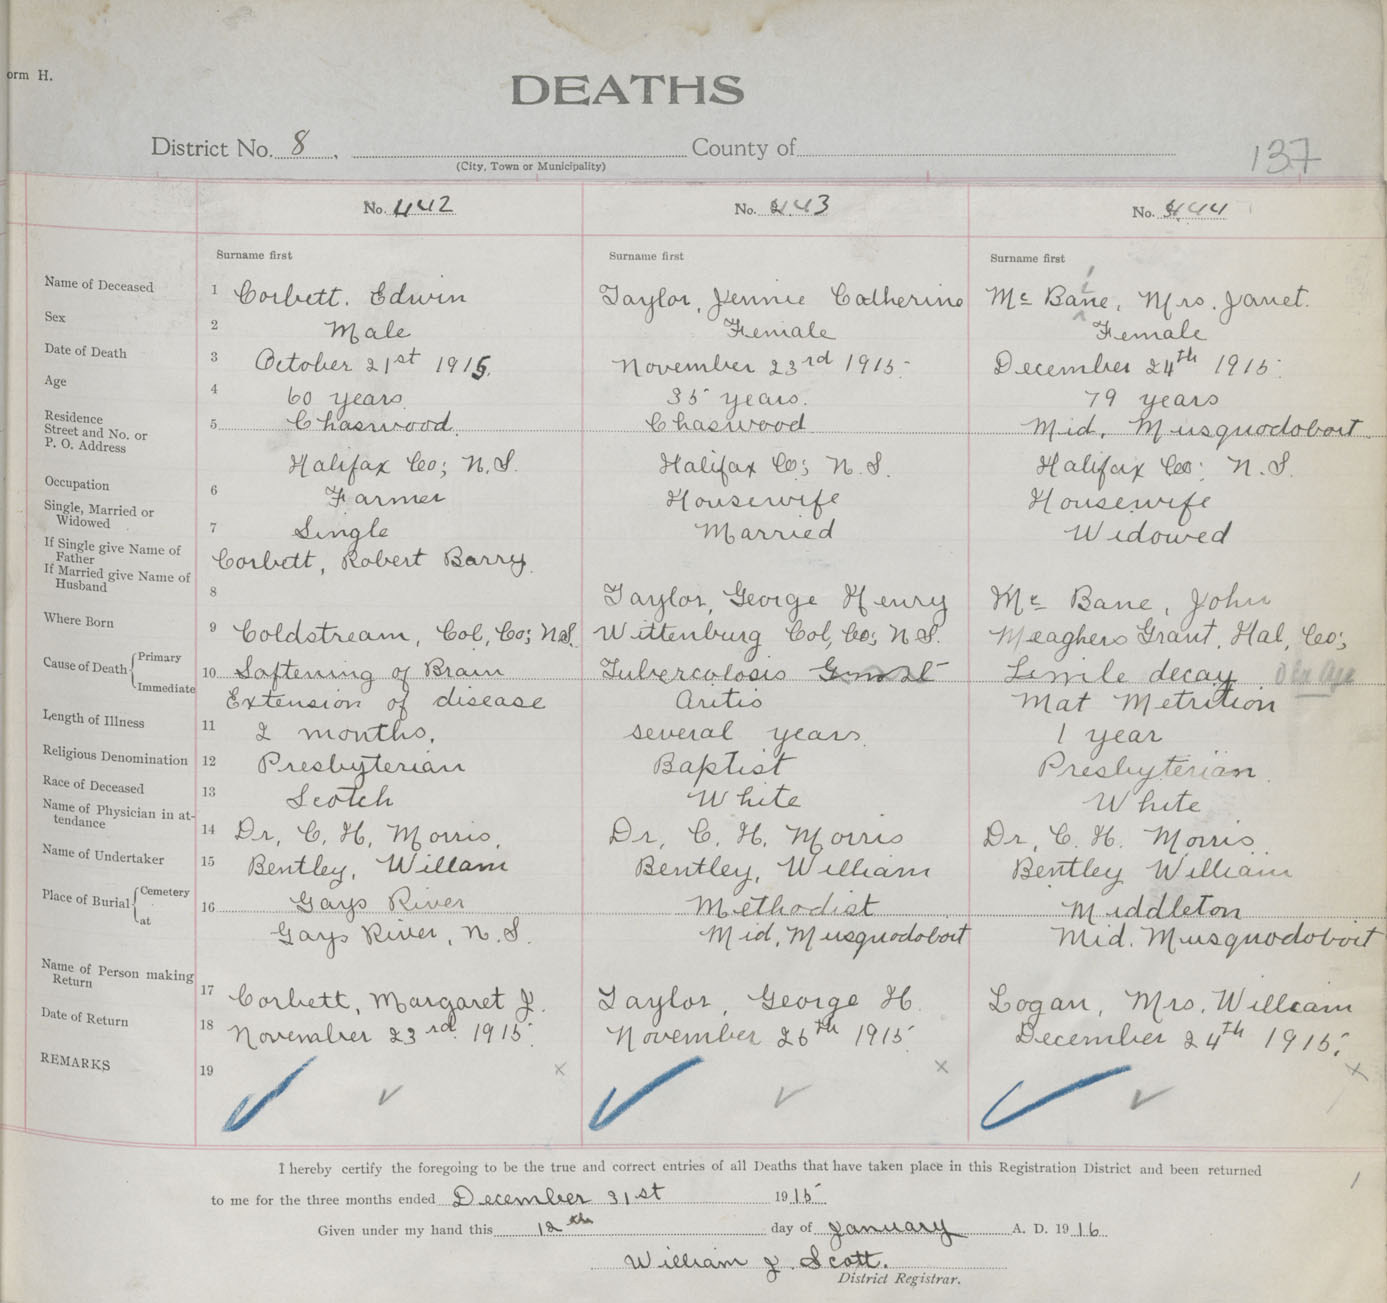 orm H.
DEATHS
District No. 8. County of 137
(City, Town or Municipality)
No. 442 No. 443 No. 444
Surname first Surname first Surname first
Name of Deceased 1 Corbett. Edwin Taylor, Jennie Catherine Mc Bane, Mrs. Janet.
Sex 2 Male Female Female
Date of Death 3 October 21st 1915. November 23rd 1915. December 24th 1915.
Age 4 60 years. 35 years. 79 years
Residence Street and No. or P. O. Address 5 Chaswood. Chaswood Mid, Musquodoboit.
Halifax Co; N.S. Halifax Co; N.S. Halifax Co: N.S.
Occupation 6 Farmer Housewife Housewife
Single, Married or Widowed 7 Single Married Widowed
If Single give Name of Father Corbett, Robert Barry.
If Married give Name of Husband 8 Taylor, George Henry Mc Bane, John
Where Born 9 Coldstream, Col, Co; N.S. Wittenburg Col, Co; N.S. Meaghers Grant, Hal, Co;
Cause of Death Primary 10 Softening of Brain Tubercolosis Senile decay Old Age
Immediate Extension of disease Aritis Mat Metrition
Length of Illness 11 2 months. several years. 1 year
Religious Denomination 12 Presbyterian Baptist Presbyterian.
Race of Deceased 13 Scotch White White
Name of Physician in attendance 14 Dr, C. H. Morris. Dr, C. H. Morris Dr, C. H. Morris.
Name of Undertaker 15 Bentley, Willam Bentley, William Bentley William
Place of Burial Cemetery at 16 Gays River Methodist Middleton
Gays River, N.S. Mid, Musquodoboit Mid. Musquodoboit
Name of Person making Return 17 Corbett, Margaret J. Taylor, George H. Logan, Mrs. William
Date of Return 18 November 23rd. 1915. November 26th 1915. December 24th 1915.
REMARKS 19
I hereby certify the foregoing to be the true and correct entries of all Deaths that have taken place in this Registration District and been returned
to me for the three months ended December 31st 1915
Given under my hand this 12th day of January A. D. 1916
William J. Scott.
District Registrar.